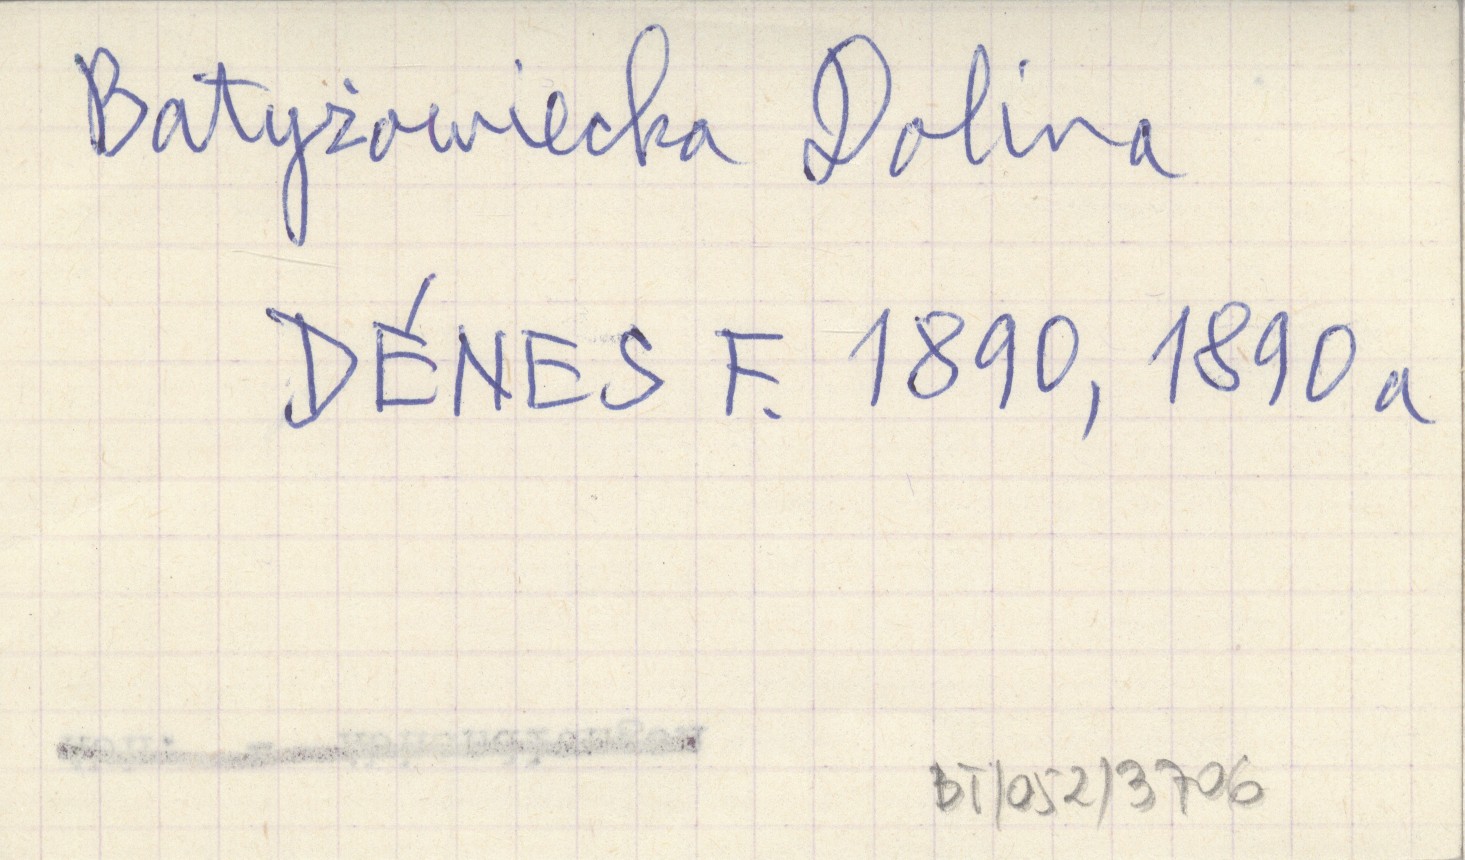 Batyżowiecka Dolina
DÉNES F. 1890, 1890a
BT/052/3706